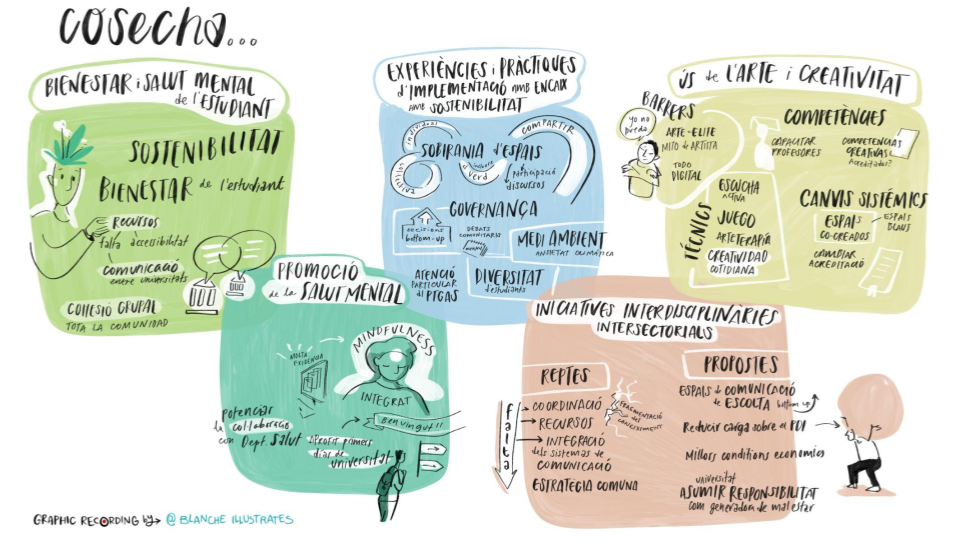 cosecha...
BIENESTAR i SALUT MENTAL
de l'ESTUDIANT
SOSTENIBILITAT
BIENESTAR de l'estudiant
RECURSOS
falta accessibilitat
comunicació
entre universitats
COHESIÓ GRUPAL
TOTA LA COMUNIDAD
PROMOCIÓ
de la SALUT MENTAL
MOLTA
EVIDENCIA
MINDFULNESS
INTEGRAT
Benvingut!!
potenciar
la col·laboració
con Dept. Salut
aprofit primers
días de
universitat
EXPERIÈNCIES i PRÀCTIQUES
d'IMPLEMENTACIÓ AMB ENCAIX
AMB SOSTENIBILITAT
individual
col·lectiva
COMPARTIR
SOBIRANIA d'ESPAIS
verd
participació
discursos
GOVERNANÇA
decisions
bottom-up
DEBATS
COMUNITARIS
MEDI AMBIENT
ANSIETAT CLIMÀTICA
ATENCIÓ
PARTICULAR
al PTGAS
DIVERSITAT
d'estudiants
INICIATIVES INTERDISCIPLINÀRIES
INTERSECTORIALS
REPTES
falta
COORDINACIÓ
RECURSOS
INTEGRACIÓ
dels sistemas de
COMUNICACIÓ
ESTRATEGIA COMUNA
FRAGMENTACIÓ
del
CONEIXEMENT
PROPOSTES
ESPAIS de COMUNICACIÓ
de ESCOLTA bottom up
Reducir carga sobre el PDI
Millors conditions economics
universitat
ASUMIR RESPONSIBILITAT
com generadora de malestar
ÚS de l'ARTE i CREATIVITAT
BARRERS
yo no
puedo
ARTE-ELITE
MITO de ARTISTA
TODO
DIGITAL
COMPETÈNCIES
CAPACITAR
PROFESORES
COMPETENCIAS
CREATIVAS
Acreditades?
TÉCNICS
ESCUCHA
ACTIVA
JUEGO
ARTETERAPIA
CREATIVIDAD
COTIDIANA
CANVIS SISTÉMICS
ESPAIS
CO-CREADOS
ESPAIS
BLAUS
CAMBIAR
ACREDITACIÓ
GRAPHIC RECORDING by → @ BLANCHE ILLUSTRATES